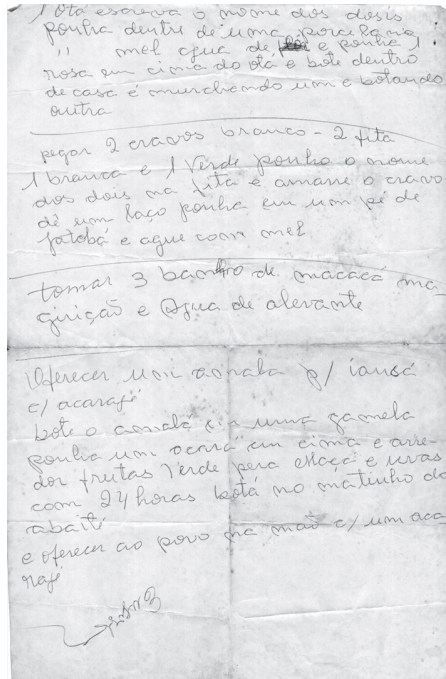 1 Otá escreva o nome dos dosis
ponha dentro de uma porcelana
" mel agua de e ponha 1
rosa em cima do otá e bote dentro
de casa é murchando um e botando
outra
pegar 2 cravos branco - 2 fita
1 branca e 1 Verde ponho o nome
dos dois na fita e amarre o cravo
dê um laço ponha em um pé de
Jatobá e ague com mel
tomar 3 banho de macaçá ma
e Agua de alevante
Oferecer um amala p/ iansã
c/ acarajé
bote o amalá em uma gamela
ponha um acará em cima e arre
dor frutas Verde pera Maçã e uvas
com 24 horas botá no matinho do
abaité
e oferecer ao povo na mão c/ um aca
rajé